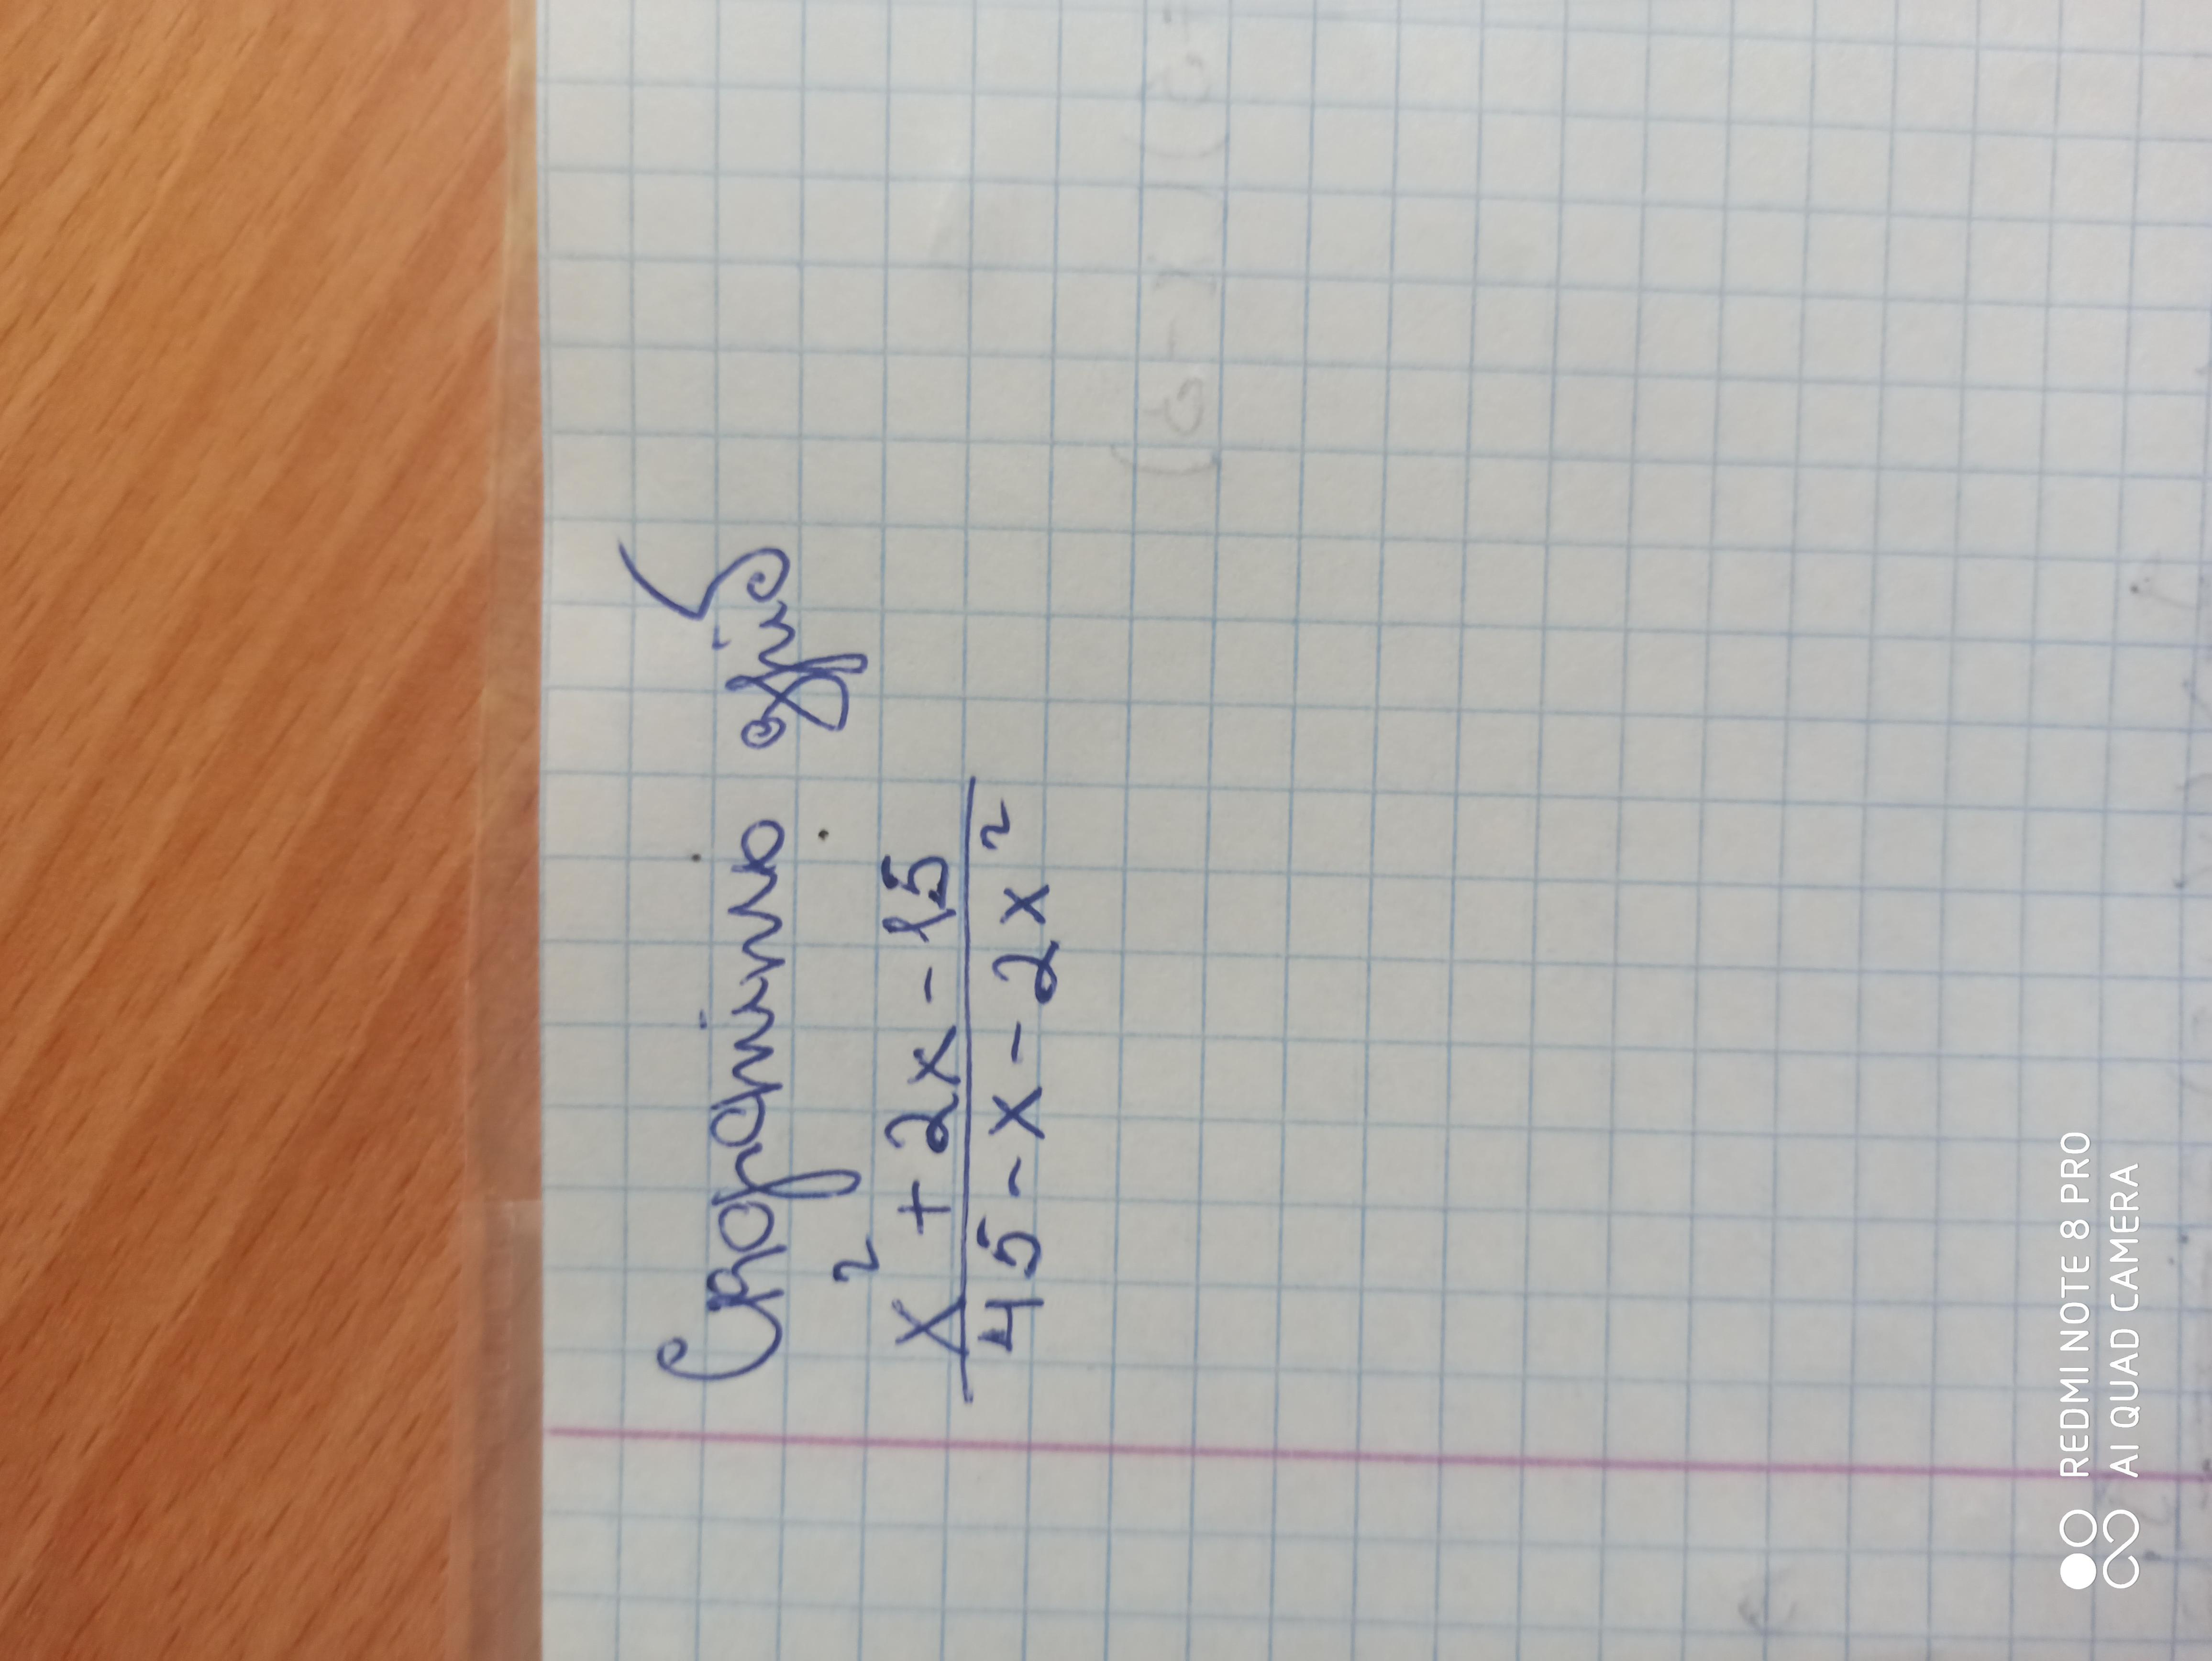 Скоротити дріб
x² + 2x - 15
45 - x - 2x²
REDMI NOTE 8 PRO
AI QUAD CAMERA